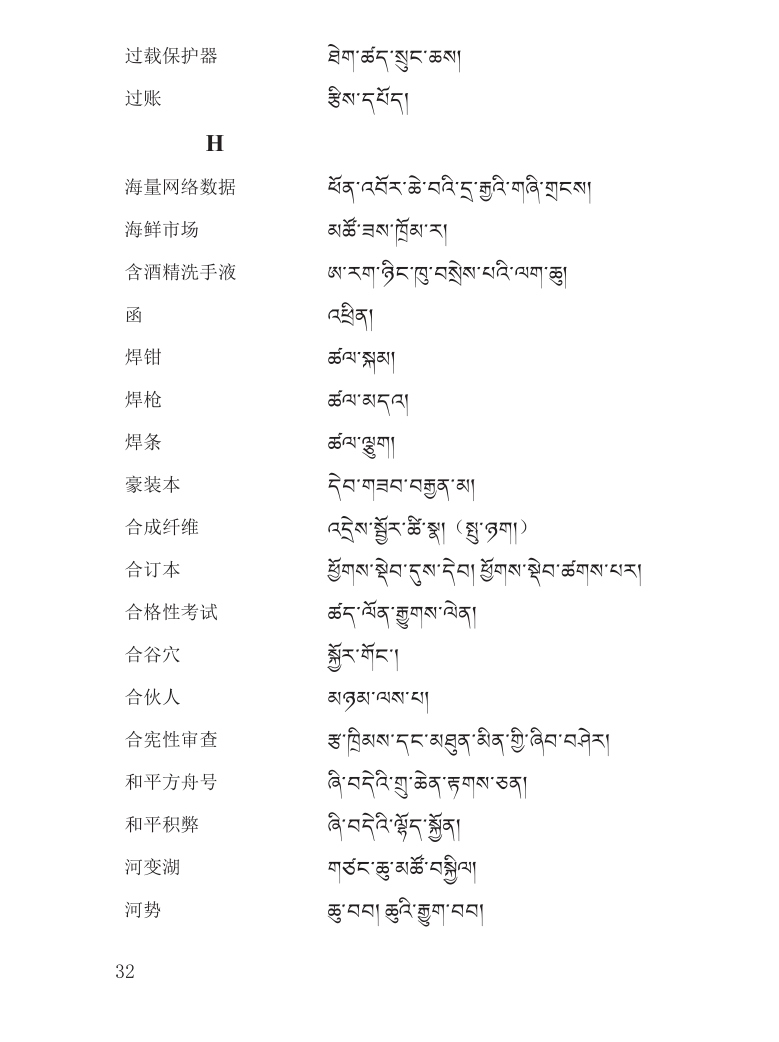 过载保护器 ཐེག་ཚད་སྲུང་ཆས།
过账 རྩིས་དཔོད།
H
海量网络数据 ཕོན་འབོར་ཆེ་བའི་དྲ་རྒྱའི་གཞི་གྲངས།
海鲜市场 མཚོ་ཟས་ཁྲོམ་ར།
含酒精洗手液 ཨ་རག་ཉིང་ཁུ་བསྲེས་པའི་ལག་ཆུ།
函 འཕྲིན།
焊钳 ཚལ་སྐམ།
焊枪 ཚལ་མདའ།
焊条 ཚལ་ལྕུག།
豪装本 དེབ་གཟབ་བརྒྱན་མ།
合成纤维 འདྲེས་སྦྱོར་ཚི་སྣ།（སྤུ་ཉག།）
合订本 ཕྱོགས་སྡེབ་དུས་དེབ། ཕྱོགས་སྡེབ་ཚགས་པར།
合格性考试 ཚད་ལོན་རྒྱུགས་ལེན།
合谷穴 སྐྱོར་གོང་།
合伙人 མཉམ་ལས་པ།
合宪性审查 རྩ་ཁྲིམས་དང་མཐུན་མིན་གྱི་ཞིབ་བཤེར།
和平方舟号 ཞི་བདེའི་གྲུ་ཆེན་རྟགས་ཅན།
和平积弊 ཞི་བདེའི་ལྷོད་སྐྱོན།
河变湖 གཙང་ཆུ་མཚོ་བསྐྱིལ།
河势 ཆུ་བབ། ཆུའི་རྒྱུག་བབ།
32